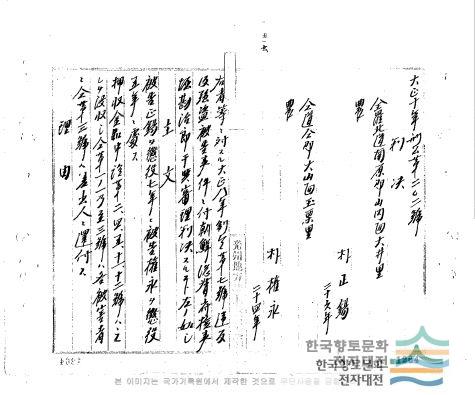 大正十年刑公第二〇二號
判決
全羅北道南原郡山内面大井里
農
朴正錫
二十六年
仝道仝郡大山面玉栗里
農
朴權永
二十四年
右者等ニ對スル大正八年制令第七號違反
及強盜被告事件ニ付朝鮮總督府檢事
干與審理判決スルコト左ノ如シ
主文
被告正錫ヲ懲役七年ニ被告權永ヲ懲役
五年ニ處ス
押收金品中
沒收シ
號ハ各被害者
號ハ差出人ニ還付ス
理由
한국향토문화
전자대전
한국향토문화
전자대전
본 이미지는 국가기록원에서 제작한 것으로 무단사용을 금